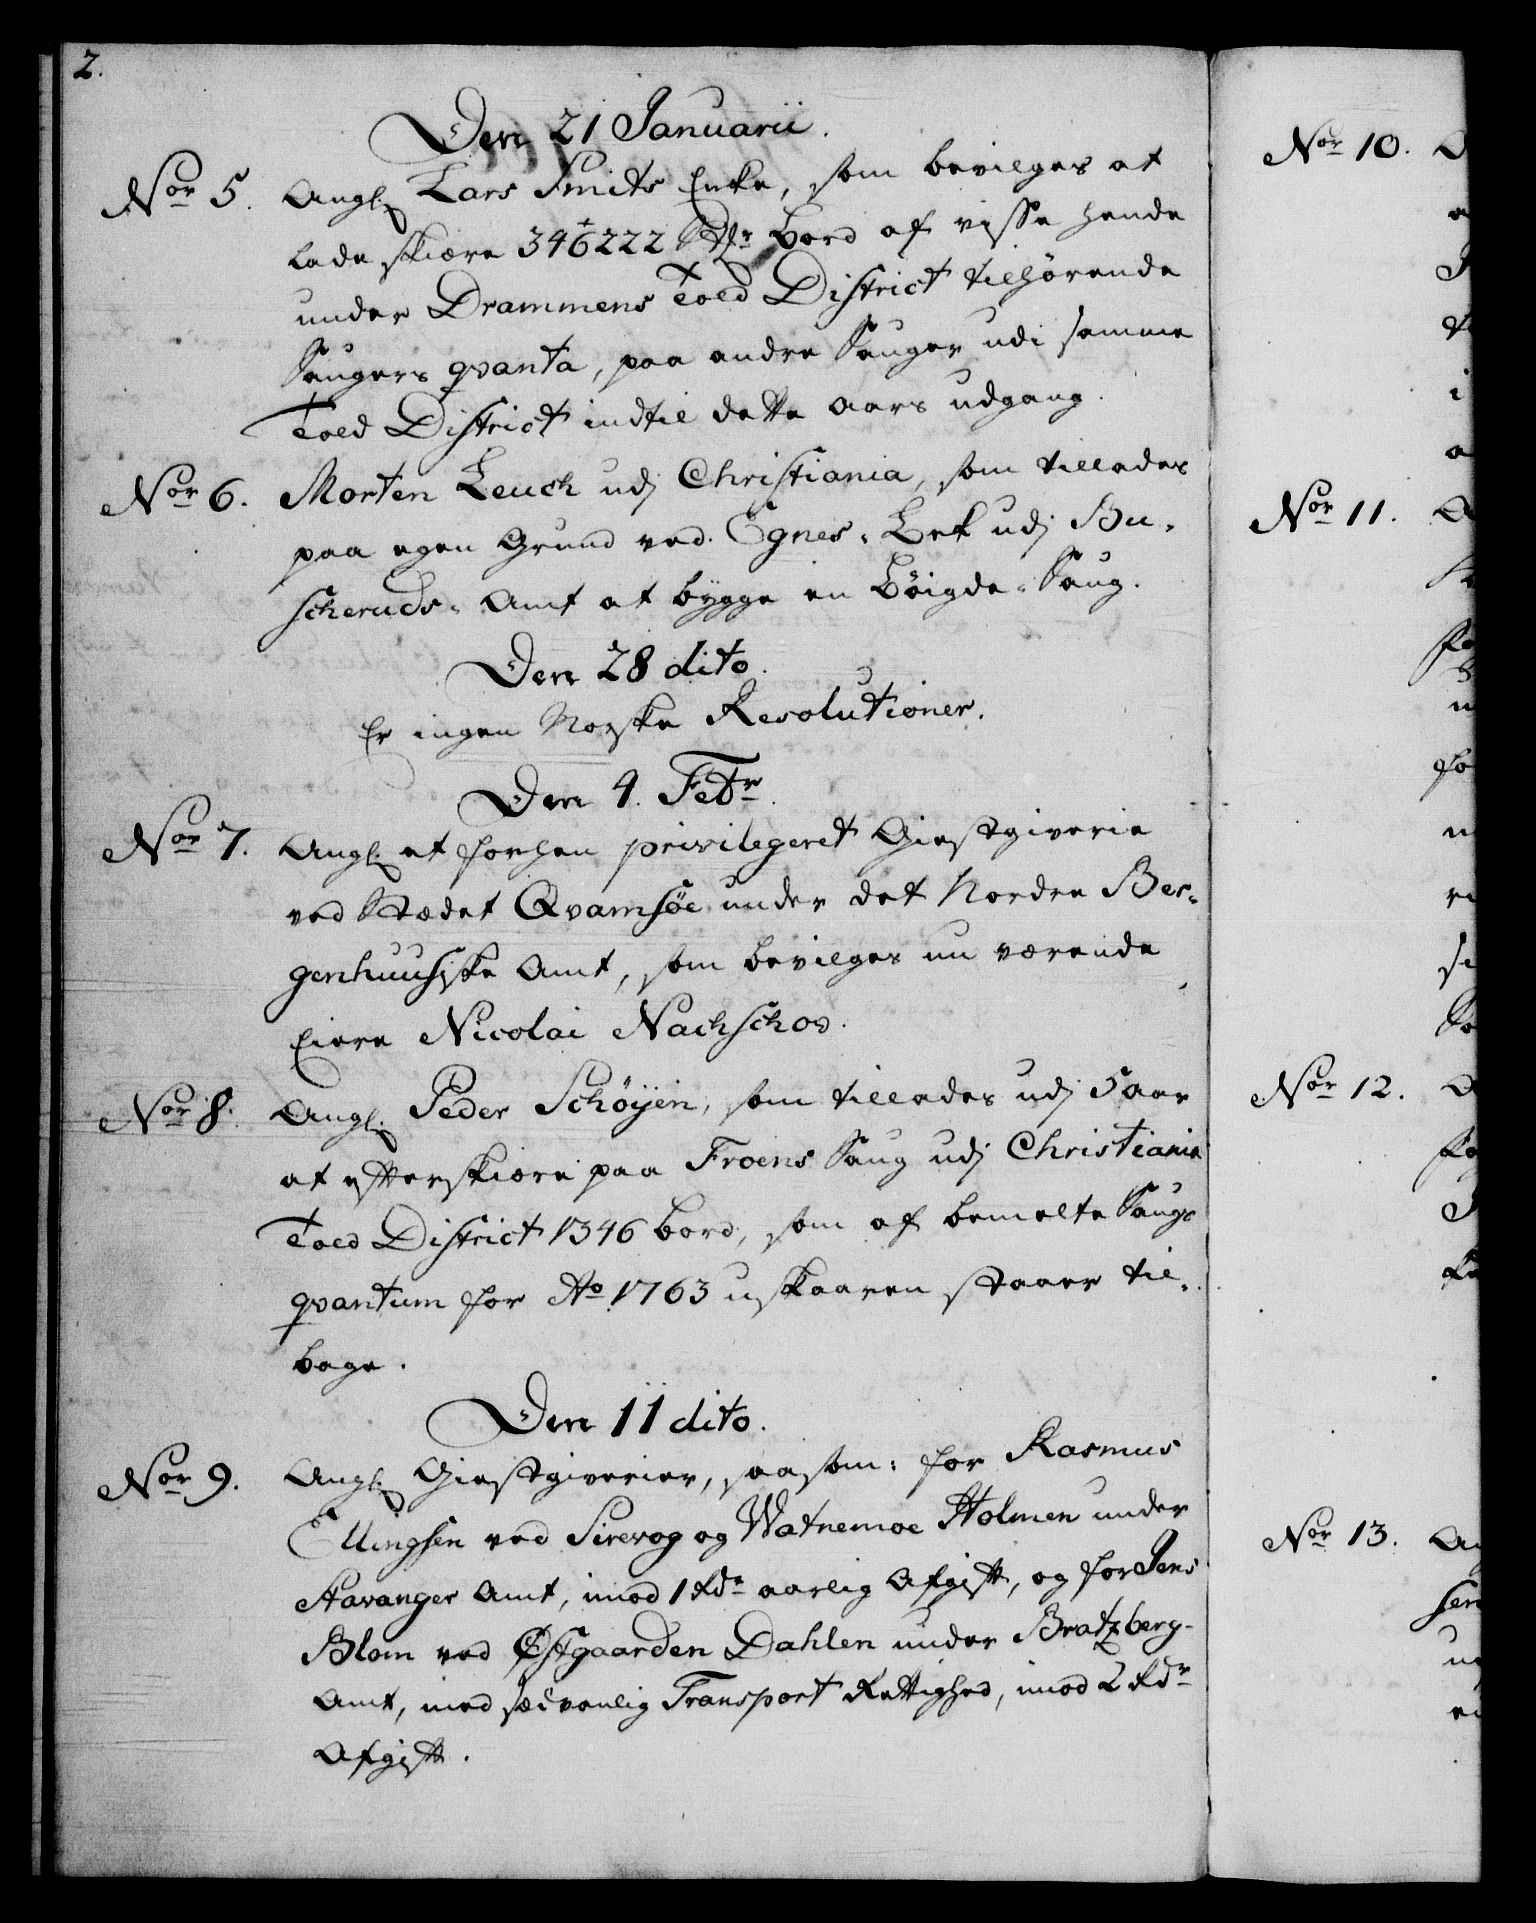 2.
Den 21 Januarii.
Nor 5. Angl. Lars Smits Enke, som bevilges at
lade skiære 346222 Bord af visse hende
under Drammens Told District tilhørende
Saugers qvanta, paa andre Sauger udi samme
Told District indtil dette Aars udgang.
Nor 6. Morten Leuch udj Christiania, som tillades
paa egen Grund ved Egnes-Bek udj Bu-
scheruds-Amt at bygge en Bøigde-Saug.
Den 28 dito.
Er ingen Norske Resolutioner.
Den 4. Febr.
Nor 7. Angl. et forhen privilegeret Giestgiverie
ved Stædet Qvamsöe under det Nordre Ber-
genhuusiske Amt, som bevilges nu værende
Eiere Nicolai Nachschov.
Nor 8. Angl. Peder Schöyen, som tillades udj 5 aar
at efterskiære paa Froens Saug udj Christiania
Told District 1346 bord, som af bemelte Saugs
qvantum for Ao 1763 uskaaren staaer til-
bage.
Den 11 dito.
Nor 9. Angl. Giestgiverier, saasom: for Rasmus
Ellingsen ved Sirevog og Watnemoe Holmen under
Stavanger Amt, imod 1 Rdr aarlig Afgift, og for Jens
Blom ved Østgaarden Dahlen under Bratzberg-
Amt, med sædvanlig Transport Rettighed, imod 2 Rdr
Afgift.
Nor 10.
Nor 11.
Nor 12.
Nor 13.